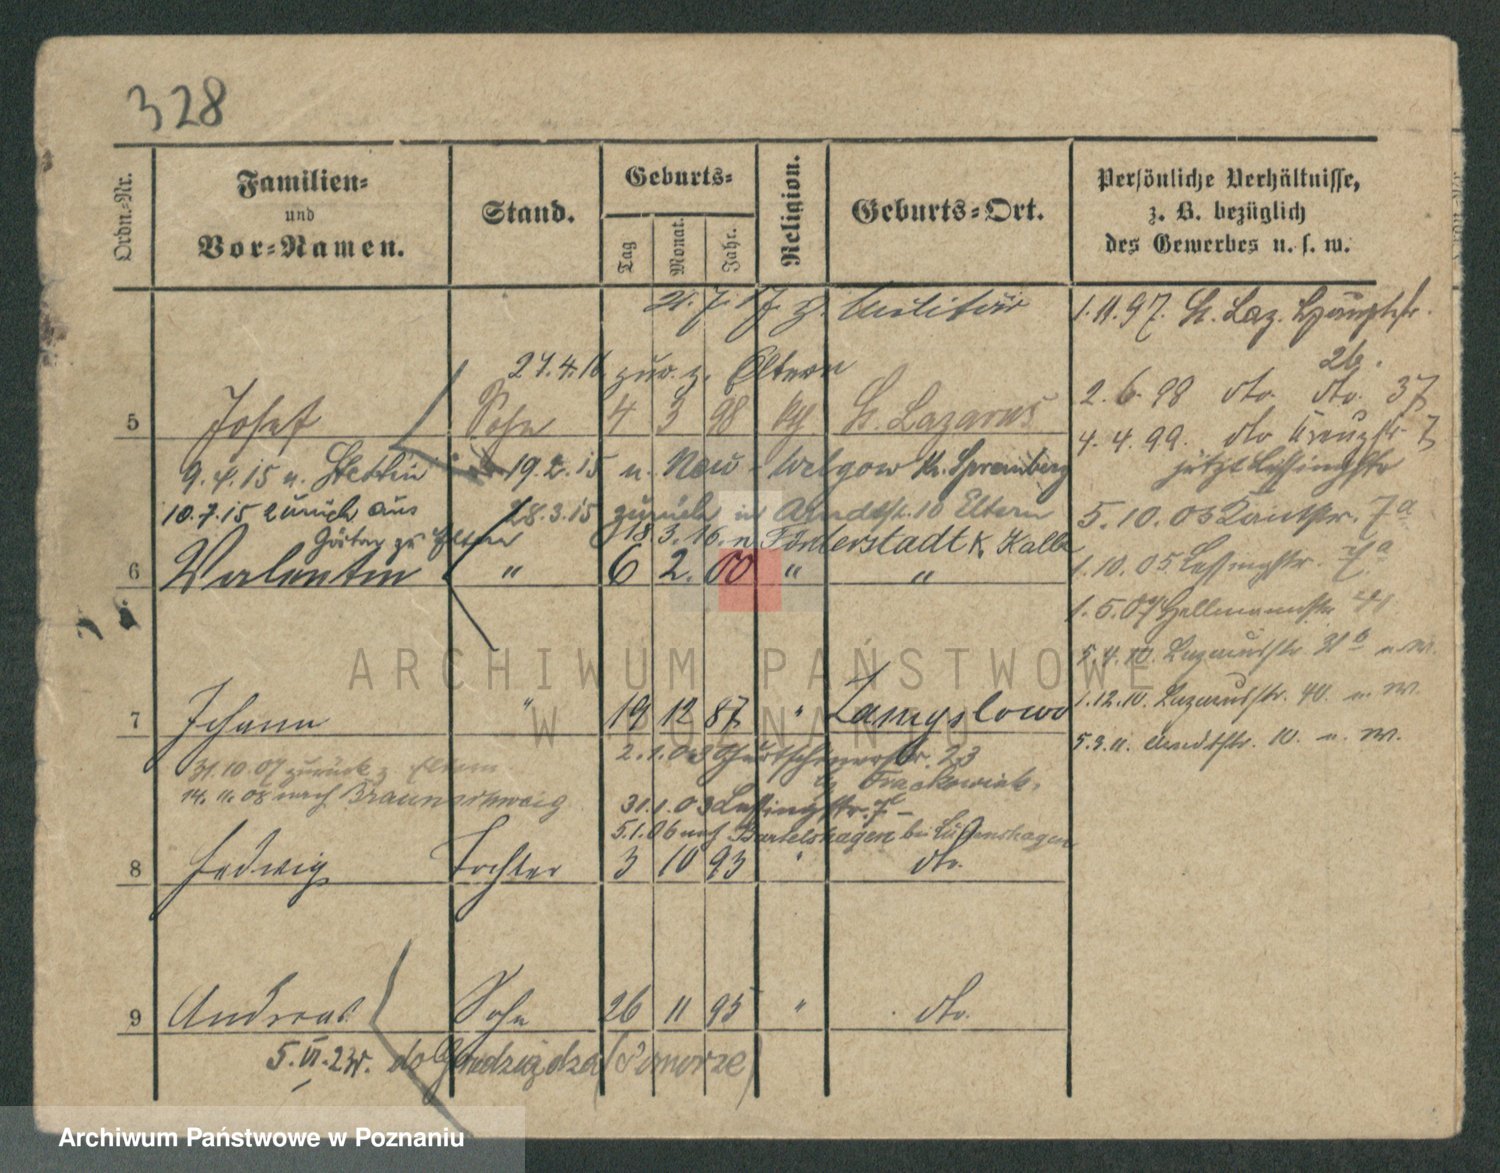 328
Ordn.-Nr.
Familien-
und
Vor-Namen.
Stand.
Geburts-
Tag
Monat.
Jahr.
Religion.
Geburts-Ort.
Persönliche Verhältnisse,
z. B. bezüglich
des Gewerbes u. s. w.
21. 7. 17 z. Militär
27.4.16 zur. z. Eltern
5 Josef Sohn 4 3 98 St. Lazarus
9.4.15 n. Stettin
19.2.15 n. Neu-Welzow Kr. Spremberg
10.7.15 zurück aus
28.3.15 zurück in Arndtstr. 10 Eltern
zu Eltern
18. 3. 16. n. Förderstadt K. Kalbe
6 Valentin " 6 2. 00 " "
7 Johann " 19 12 87 " Zamyslowo
31.10.07 zurück z. Eltern
14. 11. 08 nach Braunschweig
2.1.03 Gurtschinerstr. 23
31.1.03 Lessingstr. 7
5.1.06 nach Bartelshagen bei
8 Hedwig Tochter 3 10 93 " dto.
9 Andreas Sohn 26 11 95 " dto.
5. VI. 23r. do Grudziądza (Pomorze)
1. 11. 97. St. Laz. Hauptstr.
26.
2. 6. 98 dto. dto. 37
4. 4. 99. dto Kreuzstr. 7
jetzt Lessingstr
5. 10. 03 Kantstr. 7a
1. 10. 05 Lessingstr. 7a
1. 5. 07 Hellmannstr.
5. 4. 10. Lazarusstr. 31b n. W.
1. 12. 10. Lazarusstr. 40. n. W.
5. 3. 11. Arndtstr. 10. n. W.
ARCHIWUM PAŃSTWOWE
W POZNANIU
Archiwum Państwowe w Poznaniu